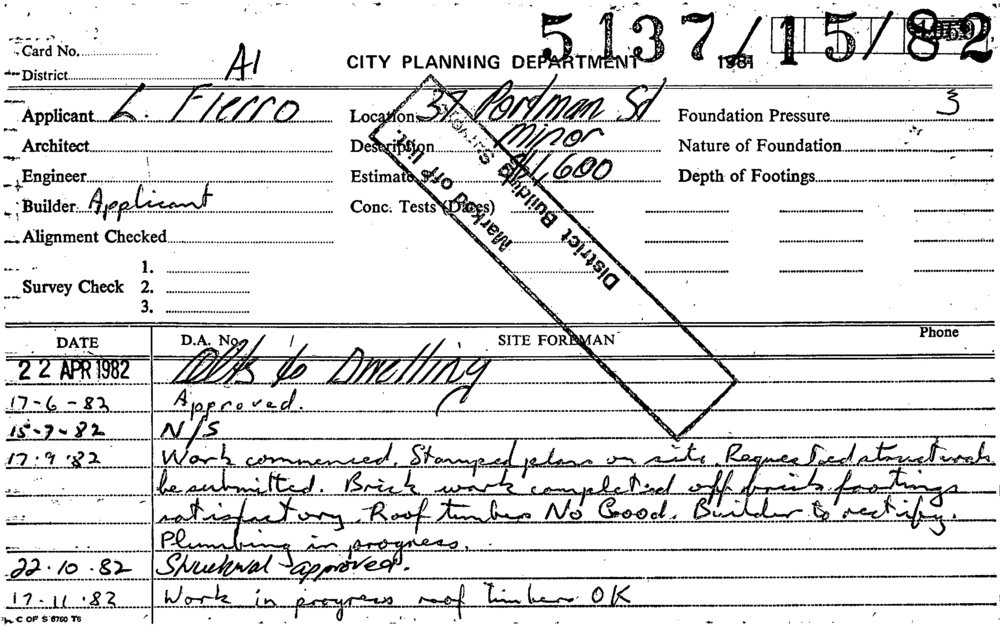 5137/15/82
Card No.
District A1
CITY PLANNING DEPARTMENT 1981
Applicant L. Fierro Location 37 Portman St Foundation Pressure 3
Architect Description minor Nature of Foundation
Engineer Estimate $1,600 Depth of Footings
Builder Applicant Conc. Tests (Dates)
Alignment Checked
1.
Survey Check 2.
3.
Marked off list.
District Building Surveyor
DATE D.A. No. SITE FOREMAN Phone
22 APR 1982 Alts to Dwelling
17-6-82 Approved.
15-7-82 N/S
17.9.82 Work commenced. Stamped plans on site. Requested structurals
be submitted. Brick work completed off brick footings
satisfactory. Roof timbers No Good. Builder to rectify.
Plumbing in progress.
22.10.82 Structural approved.
17-11.82 Work in progress roof timbers OK
C OF S 6760 T6